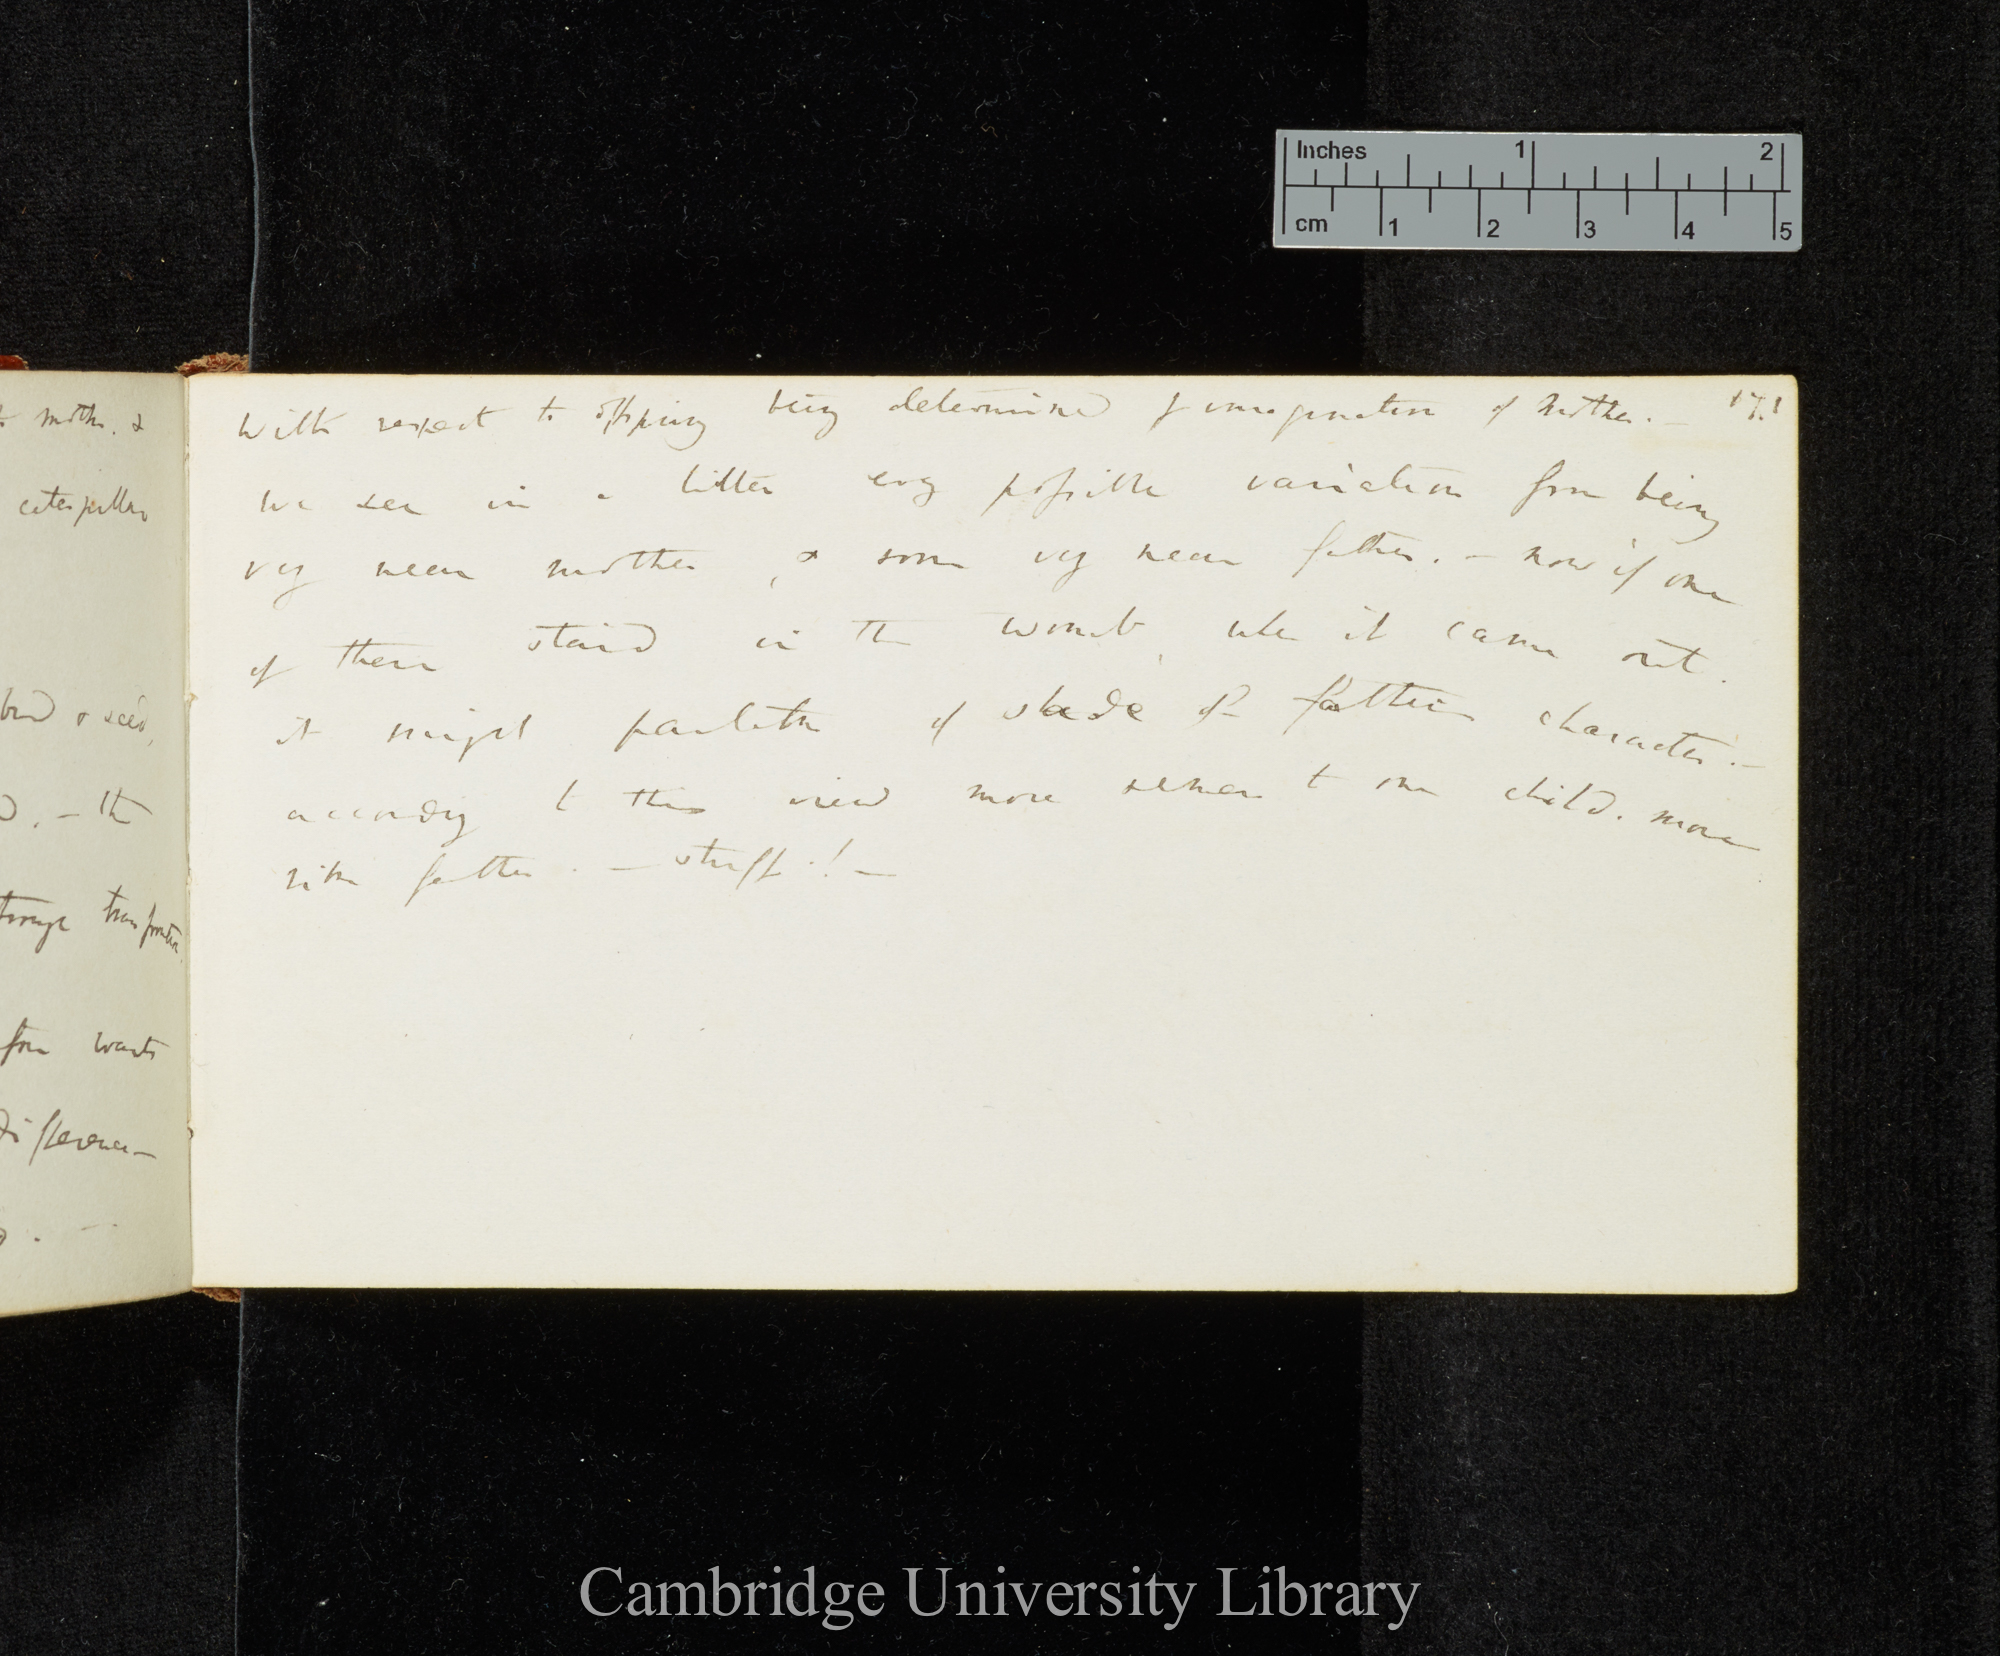 Inches 1 2
cm 1 2 3 4 5
moths. &
caterpillar
& seed,
. — the
wants
difference —
171
With respect to offspring being determined by imagination of Mother. —
we see in a litter every possible variation from being
very near mother, & some very near father. — now if one
of them staid in the womb, when it came out.
it might partake of shade of father's character. —
according to this view more semen to one child. more
like father. — stuff! —
Cambridge University Library